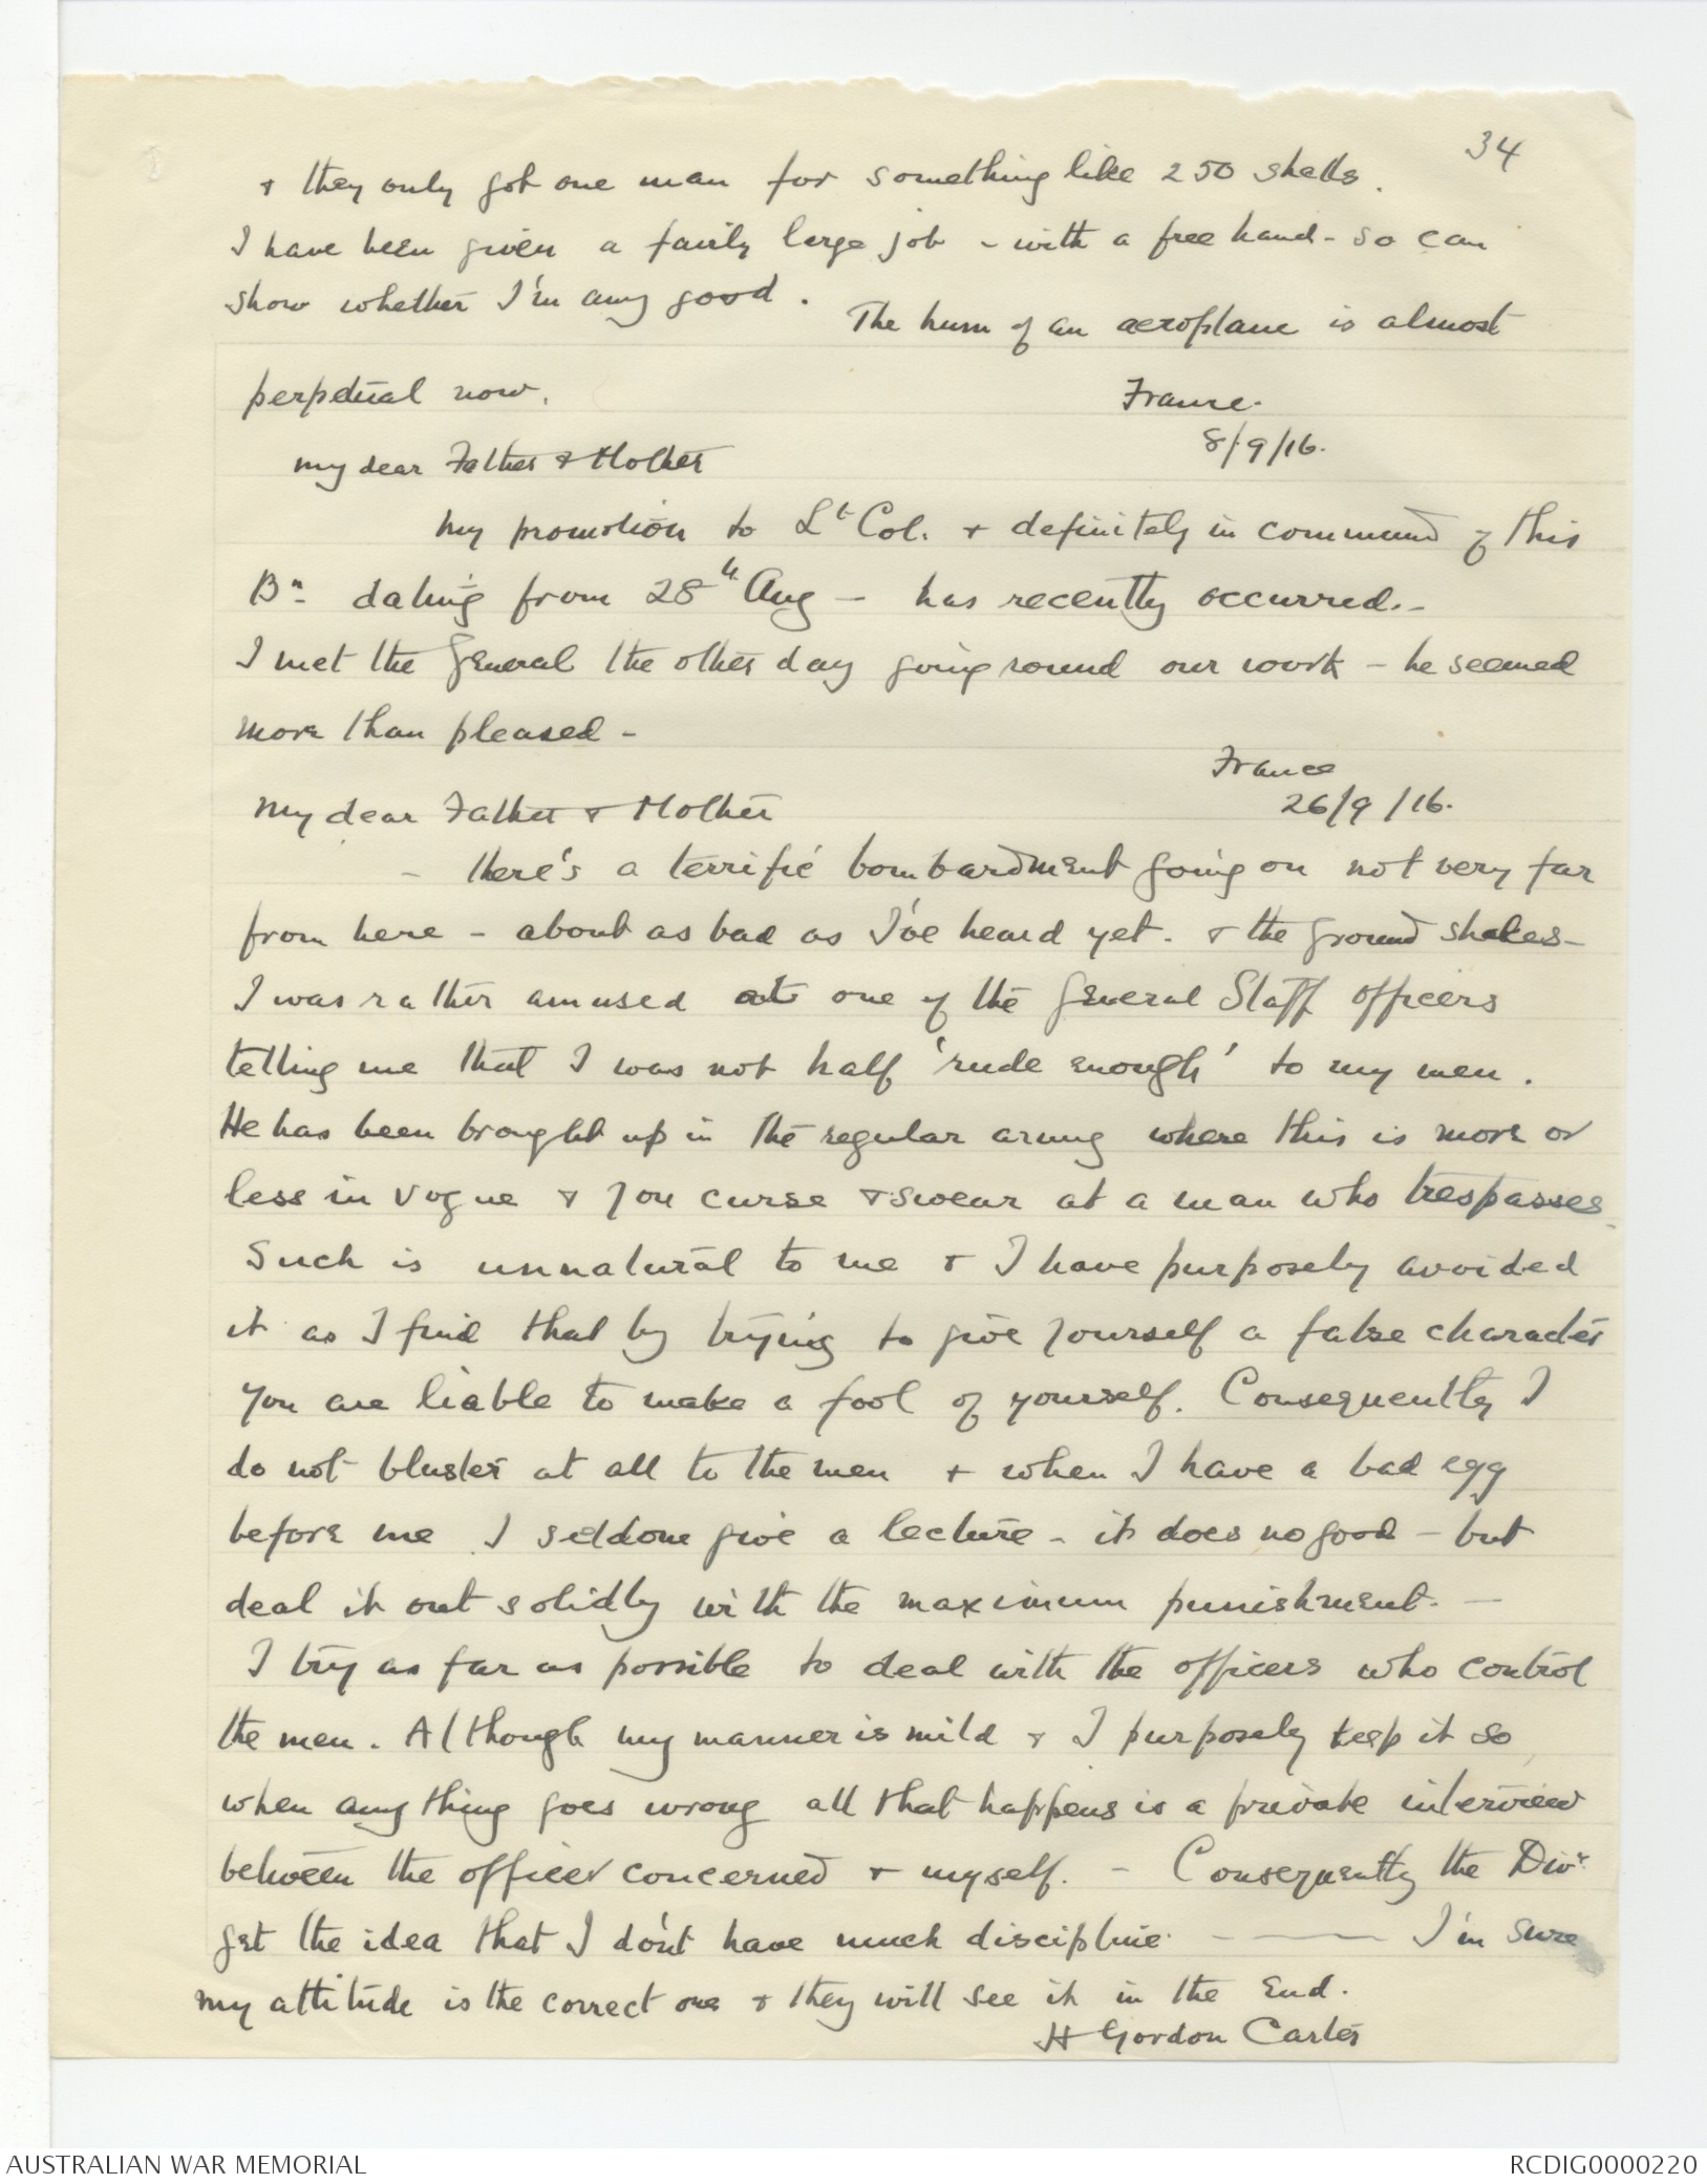 34
& they only got one man for something like 250 shells.
I have been given a fairly large job - with a free hand - so can
show whether I'm any good. The hum of an aeroplane is almost
perpetual now.
France.
8/9/16.
My dear Father & Mother
My promotion to Lt Col. & definitely in command of this
Bn dating from 28th Aug - has recently occurred. -
I met the General the other day going round our work - he seemed
more than pleased -
France
26/9/16.
My dear Father & Mother
- there's a terrific bombardment going on not very far
from here - about as bad as I've heard yet. & the ground shakes -
I was rather amused at one of the General Staff officers
telling me that I was not half 'rude enough' to my men.
He has been brought up in the regular army where this is more or
less in vogue & you curse & swear at a man who trespasses.
Such is unnatural to me & I have purposely avoided
it as I find that by trying to give yourself a false character
you are liable to make a fool of yourself. Consequently I
do not bluster at all to the men & when I have a bad egg
before me I seldom give a lecture - it does no good - but
deal it out solidly with the maximum punishment. -
I try as far as possible to deal with the officers who control
the men. Although my manner is mild & I purposely keep it so,
when anything goes wrong all that happens is a private interview
between the officer concerned & myself. - Consequently the Divn
get the idea that I don't have much discipline. - —— I'm sure
my attitude is the correct one & they will see it in the end.
H Gordon Carter
AUSTRALIAN WAR MEMORIAL
RCDIG0000220